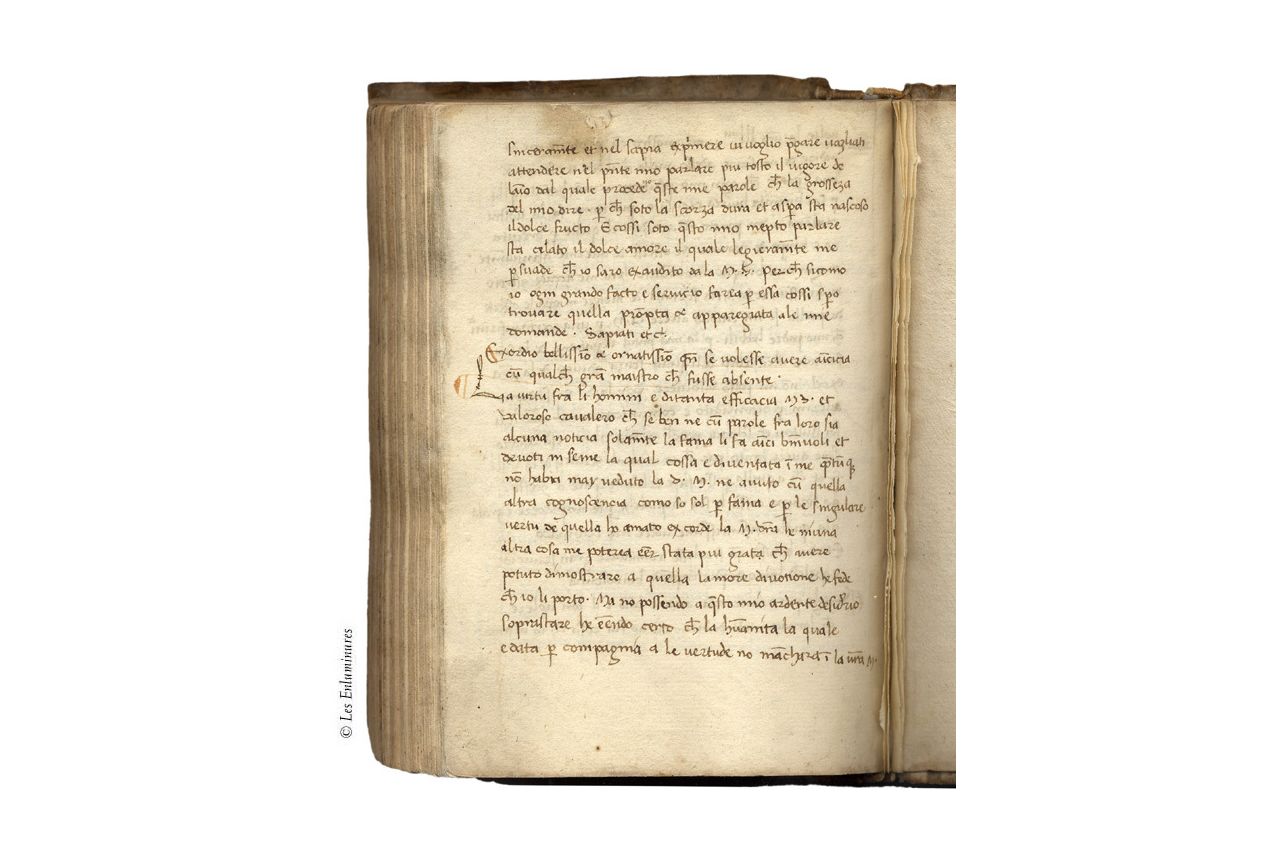 sinceram̄te et nel sapia exp̄mere vi voglio p̄gare vogliati
attendere nel pn̄te mio parlare piu tosto il vigore de
laīo dal quale procede q̄ste mie parole ch̄ la grosseza
del mio dire · p ch̄ soto la scorza dura et aspa sta nascoso
il dolce fructo E cossi soto q̄sto mio inepto parlare
sta celato il dolce amore il quale legieram̄te me
psuade ch̄ io saro exaudito da la M. Perch̄ sicomo
io ogni grando facto e servicio faria p essa cossi spo
trovare quella prōpta & apparegiata ale mie
domande · Sapiati et c̄.
Exordio bellissīo & ornatissīo qn̄ se volesse avere amicicia
cū qualch̄ grā maistro ch̄ fusse absente ·
La virtu fra li homini e di tanta efficacia M et
valoroso cavalero ch̄ se ben ne cū parole fra loro sia
alcuna noticia solam̄te la fama li fa amici bn̄ivoli et
devoti in seme la qual cossa e diventata ī me
nō habia may veduto la d. M. ne avuto cū quella
altra cognoscencia como so sol p fama e p le singulare
vertu de quella ho amato ex corde la M. vr̄a he niuna
altra cosa me poterea eēr stata piu grata ch̄ avere
potuto dimostrare a quella lamore divotione he fede
ch̄ io li porto · Ma no possendo a q̄sto mio ardente desiderio
soprastare he eēndo certo ch̄ la hūanita la quale
e data p compagnia a le vertude no mācharā ī la vr̄a M.
© Les Enluminures